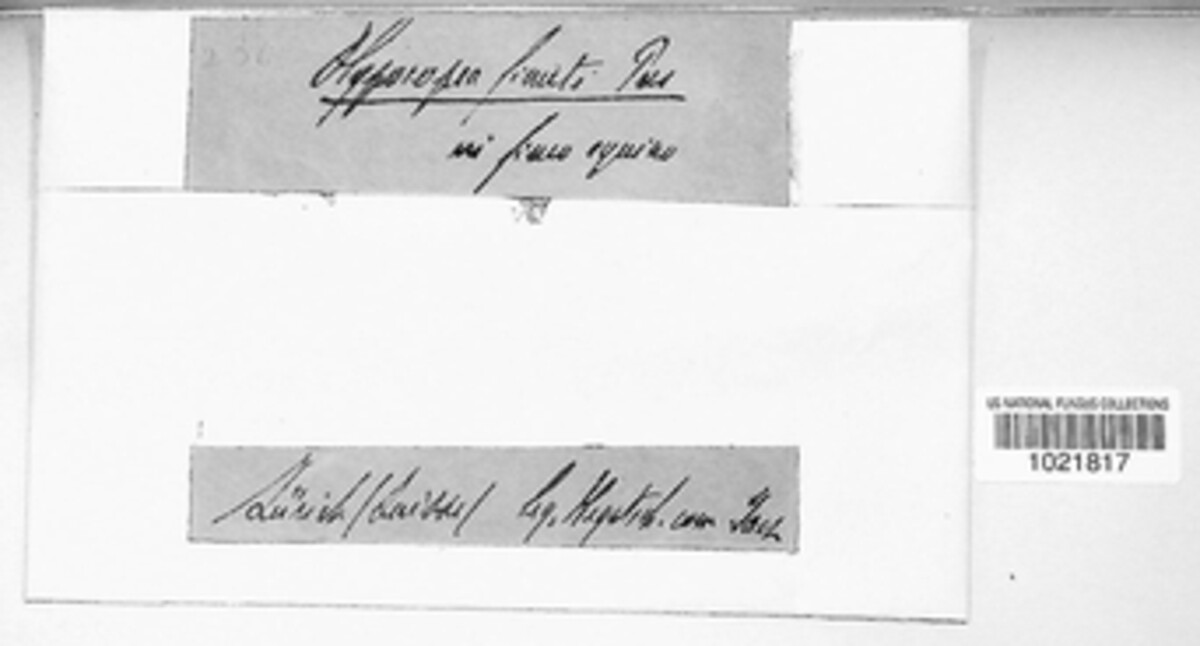 Hypocopra fimeti Pers
in fimo equino
Zürich (Suisse) leg. Hegetsch. com
US NATIONAL FUNGUS COLLECTIONS
1021817